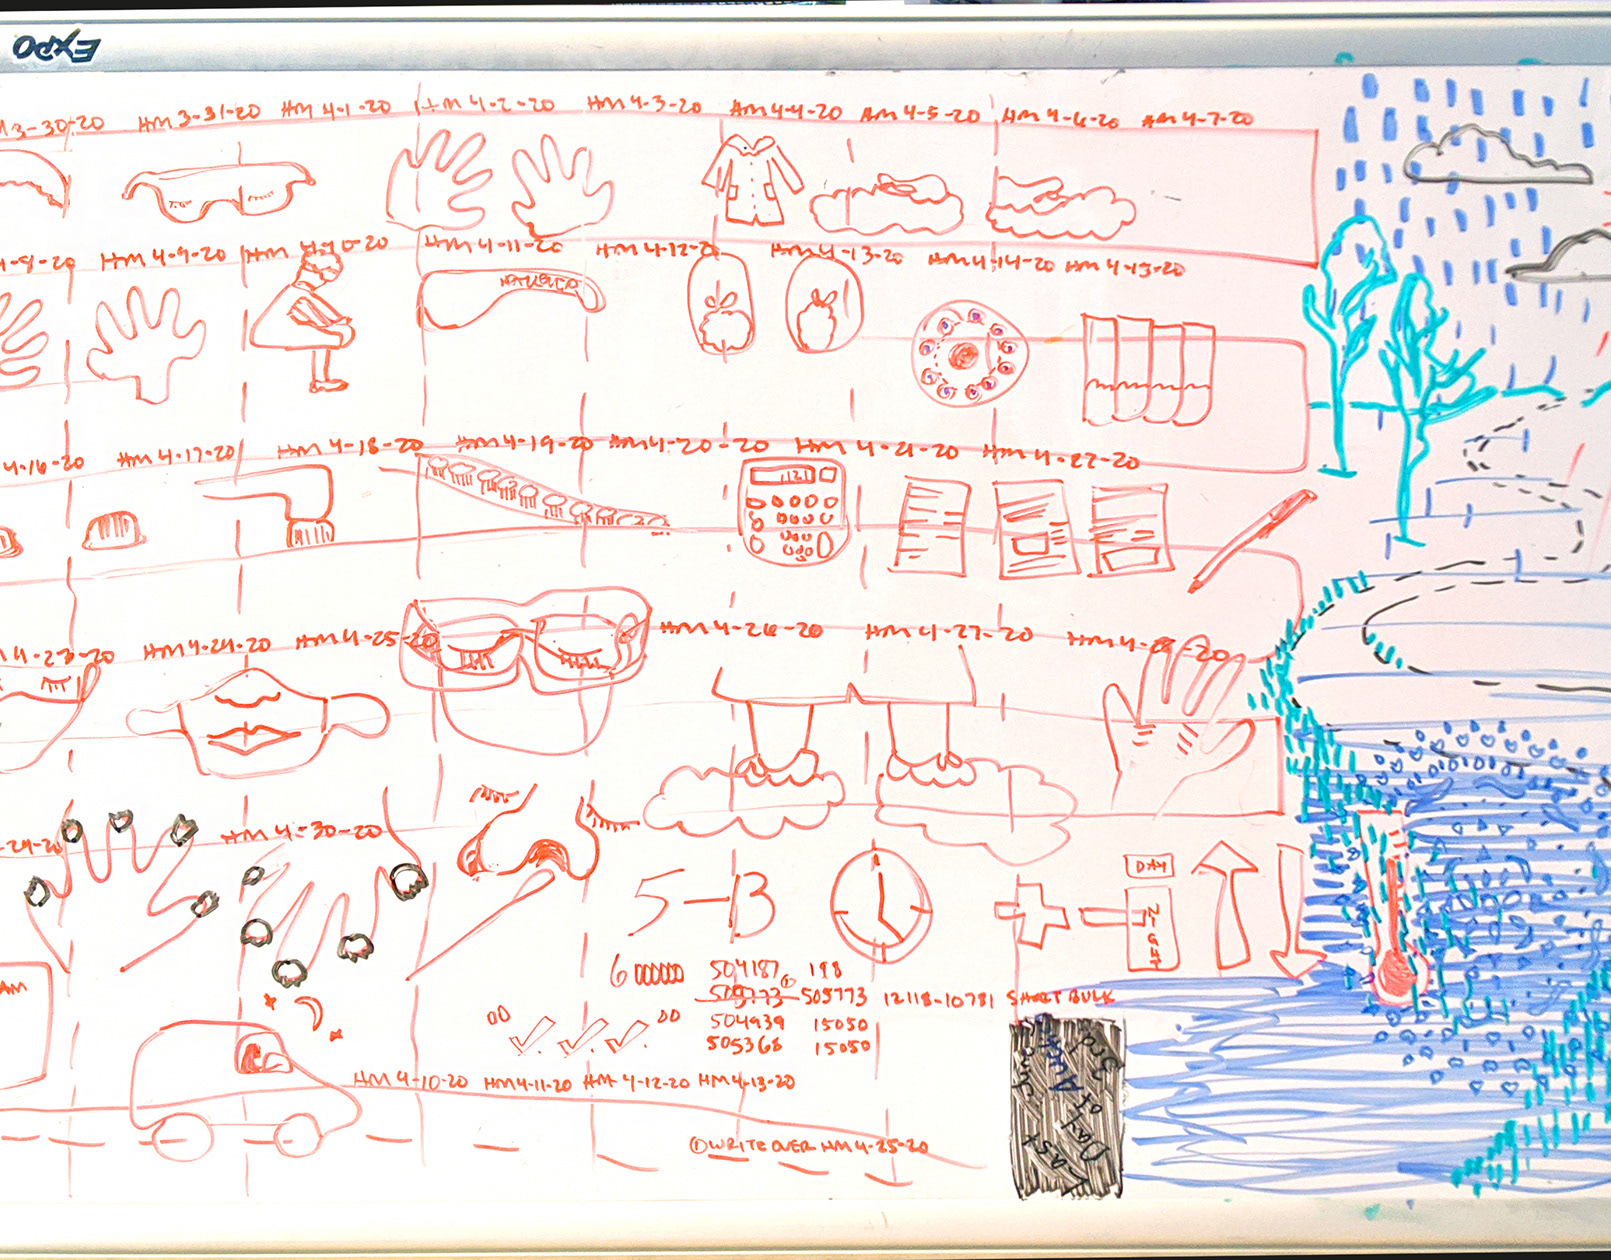 EXPO
3-30-20 HM 3-31-20 HM 4-1-20 HM 4-2-20 HM 4-3-20 HM 4-4-20 HM 4-5-20 HM 4-6-20 HM 4-7-20
4-8-20 HM 4-9-20 HM 4-10-20 HM 4-11-20 HM 4-12-20 HM 4-13-20 HM 4-14-20 HM 4-15-20
4-16-20 HM 4-17-20 HM 4-18-20 HM 4-19-20 HM 4-20-20 HM 4-21-20 HM 4-22-20
4-23-20 HM 4-24-20 HM 4-25-20 HM 4-26-20 HM 4-27-20 HM 4-28-20
-29-20 HM 4-30-20
5-13
DAY
NIGHT
6 000000 504187 198
505773 ① 505773 12118-10781 SHORT BULK
00 00 504939 15050
505368 15050
AM
HM 4-10-20 HM 4-11-20 HM 4-12-20 HM 4-13-20
① WRITE OVER HM 4-25-20
Last
Day of